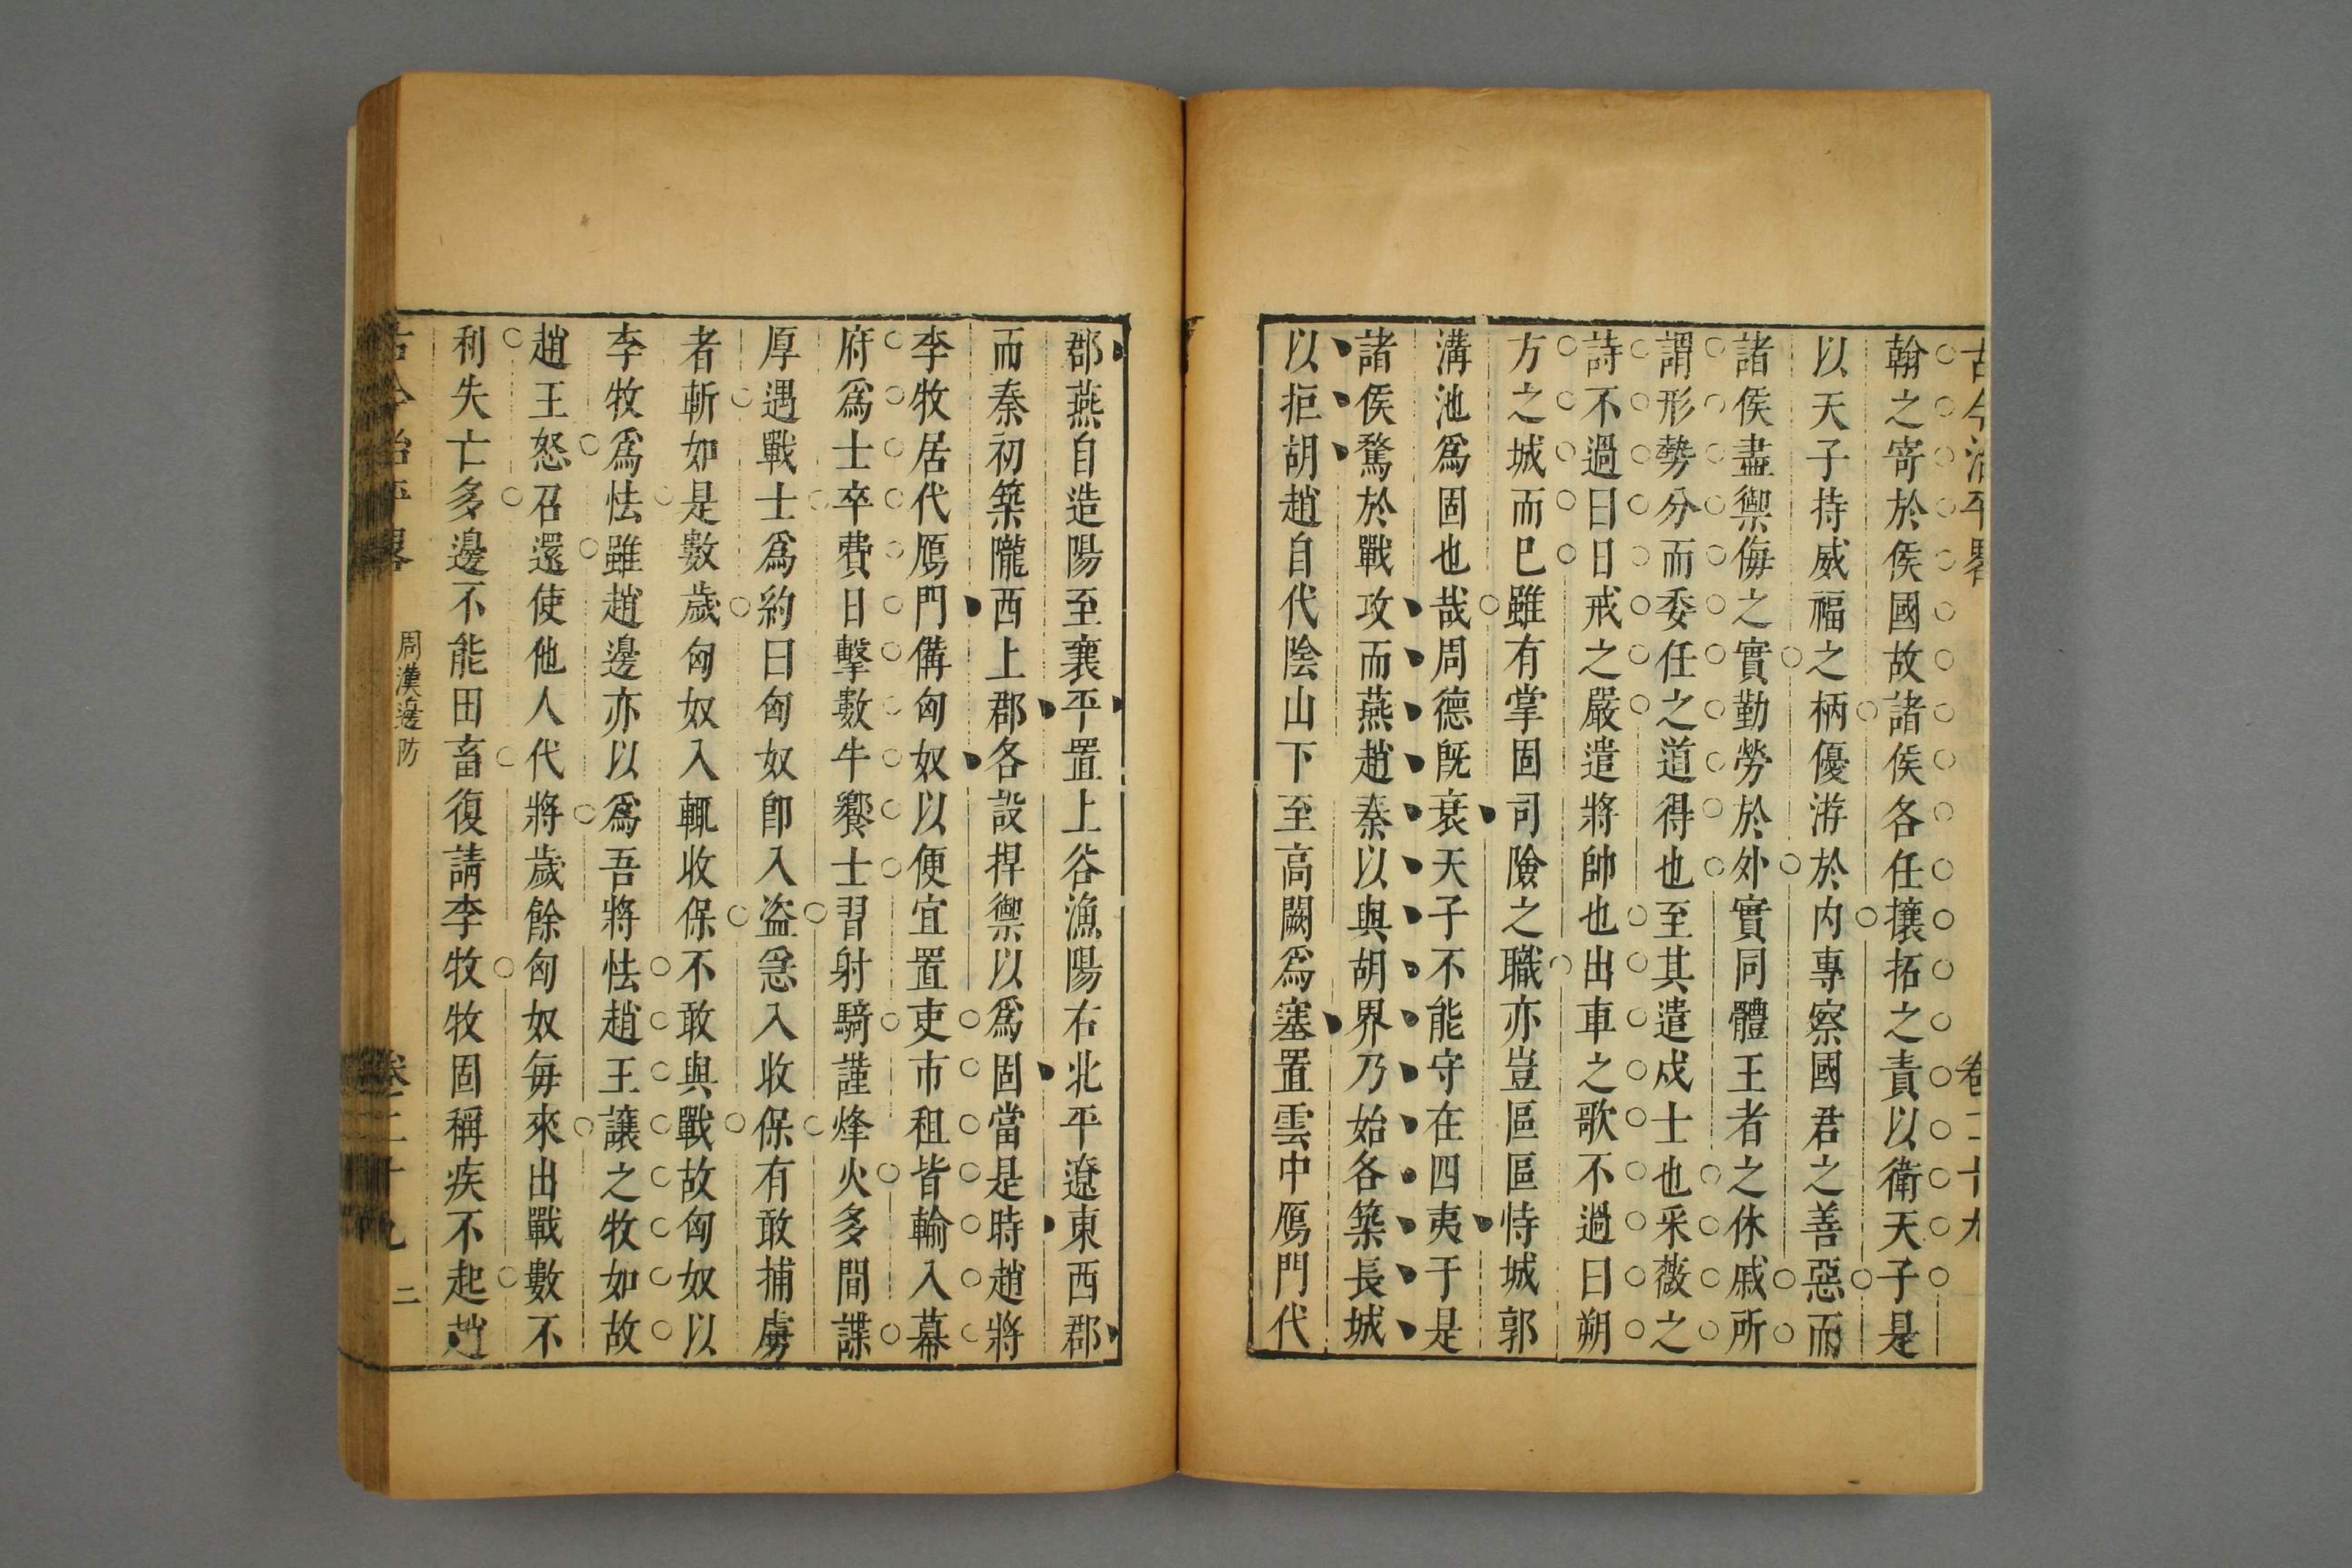 古今治平畧 卷二十九
翰之寄於侯國故諸侯各任攘拓之責以衛天子是
以天子持威福之柄優游於内專察國君之善惡而
諸侯盡禦侮之實勤勞於外實同體王者之休戚所
謂形勢分而委任之道得也至其遣戍士也采薇之
詩不過曰日戒之嚴遣將帥也出車之歌不過曰朔
方之城而已雖有掌固司險之職亦豈區區恃城郭
溝池爲固也哉周德既衰天子不能守在四夷于是
諸侯騖於戰攻而燕趙秦以與胡界乃始各築長城
以拒胡趙自代陰山下至高闕爲塞置雲中鴈門代
郡燕自造陽至襄平置上谷漁陽右北平遼東西郡
而秦初築隴西上郡各設捍禦以爲固當是時趙將
李牧居代鴈門備匈奴以便宜置吏市租皆輸入幕
府爲士卒費日擊數牛饗士習射騎謹烽火多間諜
厚遇戰士爲約曰匈奴卽入盗急入收保有敢捕虜
者斬如是數歲匈奴入輒收保不敢與戰故匈奴以
李牧爲怯雖趙邊亦以爲吾將怯趙王讓之牧如故
趙王怒召還使他人代將歲餘匈奴每來出戰數不
利失亡多邊不能田畜復請李牧牧固稱疾不起趙
古今治平畧 周漢邊防 卷二十九 二